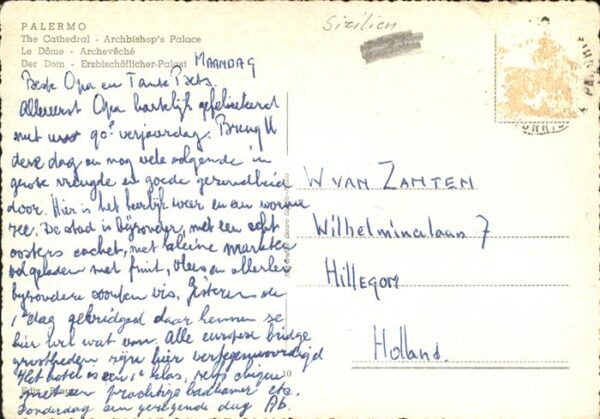 PALERMO
The Cathedral - Archbishop's Palace
Le Dôme - Archevêché
Der Dom - Erzbischöflicher-Palast
Sizilien
MAANDAG
Beste Opa en Tante Bets.
Allereerst Opa hartelijk gefeliciteerd
met uw 90e verjaardag. Breng U
deze dag en nog vele volgende in
grote vreugde en goede gezondheid
door. Hier is het heerlijk weer en een warme
zee. De stad is bijzonder, met een echt
oosters cachet, met kleine markten
volgeladen met fruit, vlees en allerlei
bijzondere soorten vis. Gisteren de
1e dag gebridged daar kennen ze
hier wel wat van. Alle europese bridge
grootheden zijn hier vertegenwoordigd
Het hotel is een 1e klas,
met een prachtige badkamer etc.
Donderdag en volgende dag Ab.
W VAN ZANTEN
Wilhelminalaan 7
Hillegom
Holland.
10